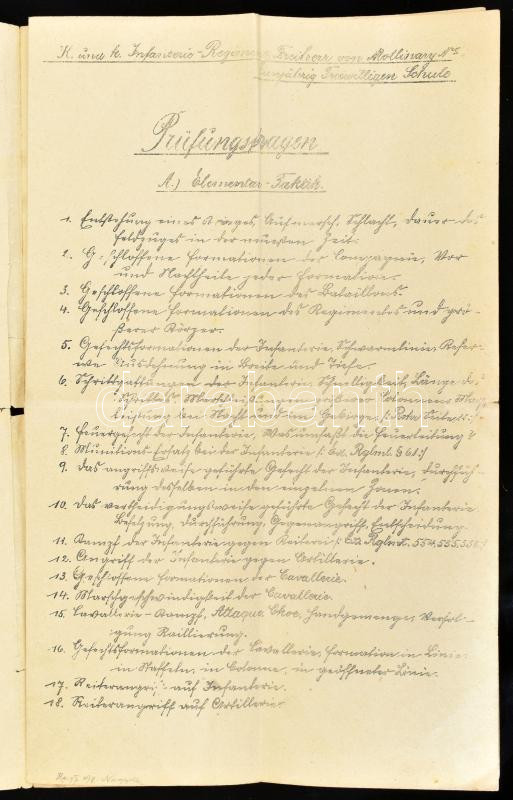 K. und k. Infanterie-Regiment Freiherr von Mollinary Nr
Einjährig Freiwilligen Schule
Prüfungsfragen
A.) Elementar-Taktik.
1. Entstehung eines Krieges, Aufmarsch, Schlacht, Dauer des
Feldzuges in der neuesten Zeit.
2. Geschlossene Formationen der Compagnie, Vor
und Nachtheile jeder Formation.
3. Geschlossene Formationen des Bataillons.
4. Geschlossene Formationen des Regimentes und grö-
ßerer Körper.
5. Gefechtsformationen der Infanterie, Schwarmlinie, Reser-
ve Ausdehnung in Breite und Tiefe.
6. Schrittgattungen der Infanterie, Schnelligkeit, Länge des
Schrittes, Colonnen,
leistung bei Nacht und im Gebirge /: Rota Seite
7. Feuergefecht der Infanterie, Was umfaßt die Feuerleitung?
8. Munitions-Ersatz bei der Infanterie /: Ex. Rglmt. § 61 :/
9. Das angriffsweise geführte Gefecht der Infanterie, Durchfüh-
rung desselben in den einzelnen Zonen.
10. Das vertheidigungsweise geführte Gefecht der Infanterie
Besetzung, Durchführung, Gegenangriff, Entscheidung.
11. Kampf der Infanterie gegen Reiterei /: Ex. Rglmt. 554, 555, 556 :/
12. Angriff der Infanterie gegen Artillerie.
13. Geschlossene Formationen der Cavallerie.
14. Marschgeschwindigkeit der Cavallerie.
15. Cavallerie-Kampf, Attaque, Choc, Handgemenge, Verfol-
gung Raillierung.
16. Gefechtsformationen der Cavallerie, Formation in Linie
in Staffeln, in Colonne, in geöffneter Linie.
17. Reiterangriff auf Infanterie.
18. Reiterangriff auf Artillerie.
darabanth